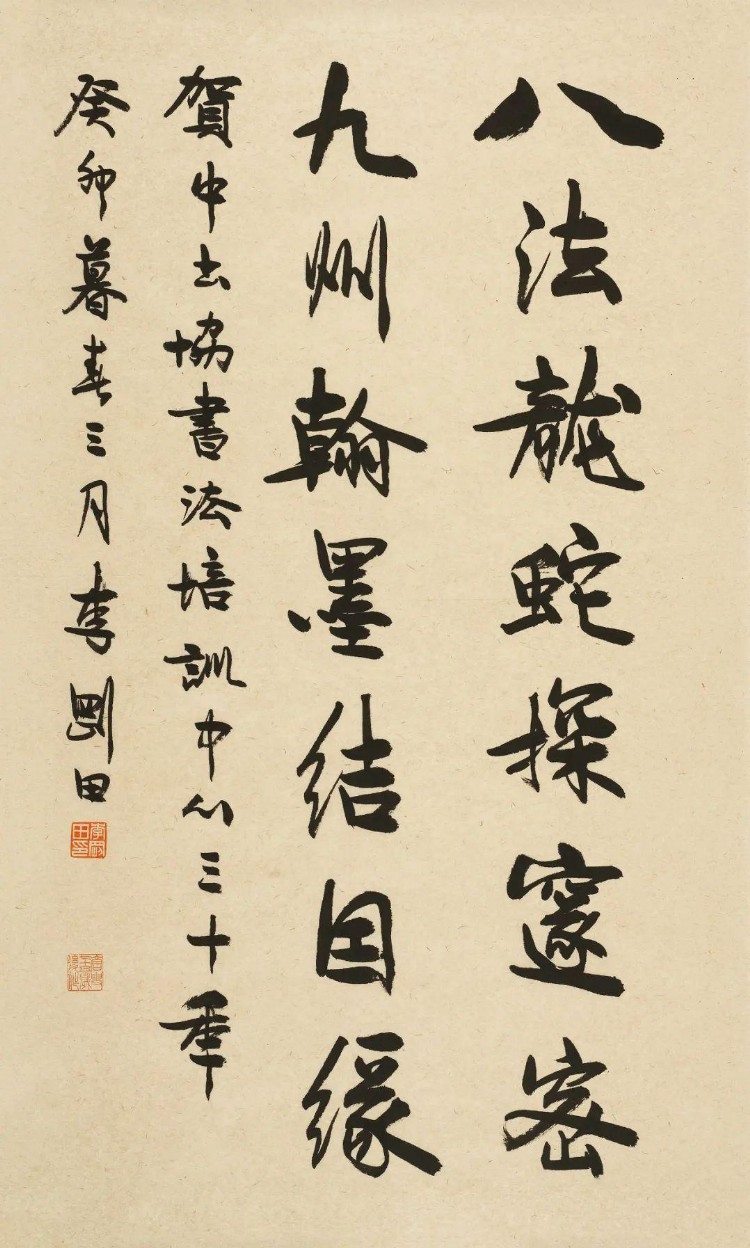 八法龍蛇探邃密
九州翰墨結因緣
賀中书協書法培訓中心三十秊
癸卯暮春三月李剛田
李剛田印